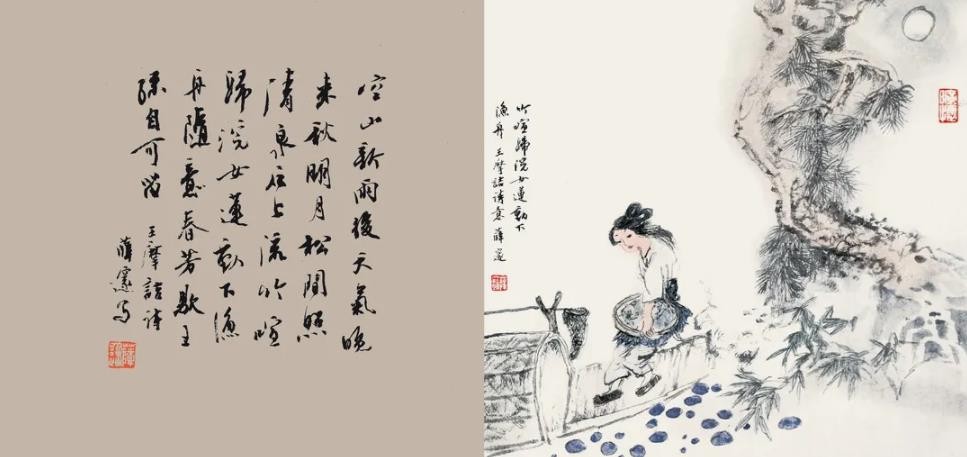 空山新雨後天氣晚
来秋明月松間照
清泉石上流竹喧
歸浣女蓮動下漁
舟隨意春芳歇王
孫自可留
王摩詰詩
薛写
竹喧歸浣女蓮動下
漁舟 王摩詰詩意 薛